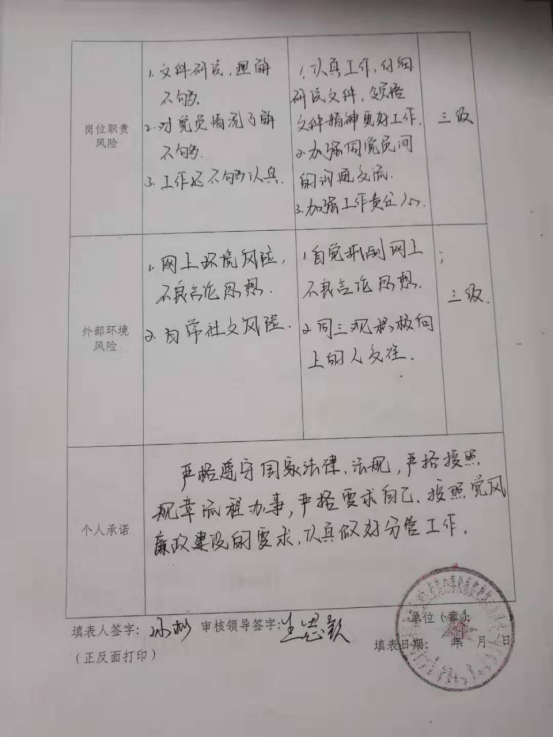 岗位职责
风险
1.文件研读,理解
不够.
2.对党员情况了解
不够.
3.工作还不够认真.
1.认真工作,仔细
研读文件,领悟
文件精神更好工作.
2.加强同党员间
的沟通交流.
3.加强工作责任心.
三级
外部环境
风险
1.网上环境风险,
不良言论思想.
2.日常社交风险.
1.自觉抵制网上
不良言论思想.
2.同三观积极向
上的人交往.
三级.
个人承诺
严格遵守国家法律、法规,严格按照
规章流程办事,严格要求自己、按照党风
廉政建设的要求,认真做好分管工作.
填表人签字: 审核领导签字: 单位(章):
(正反面打印) 填表日期: 年 月 日